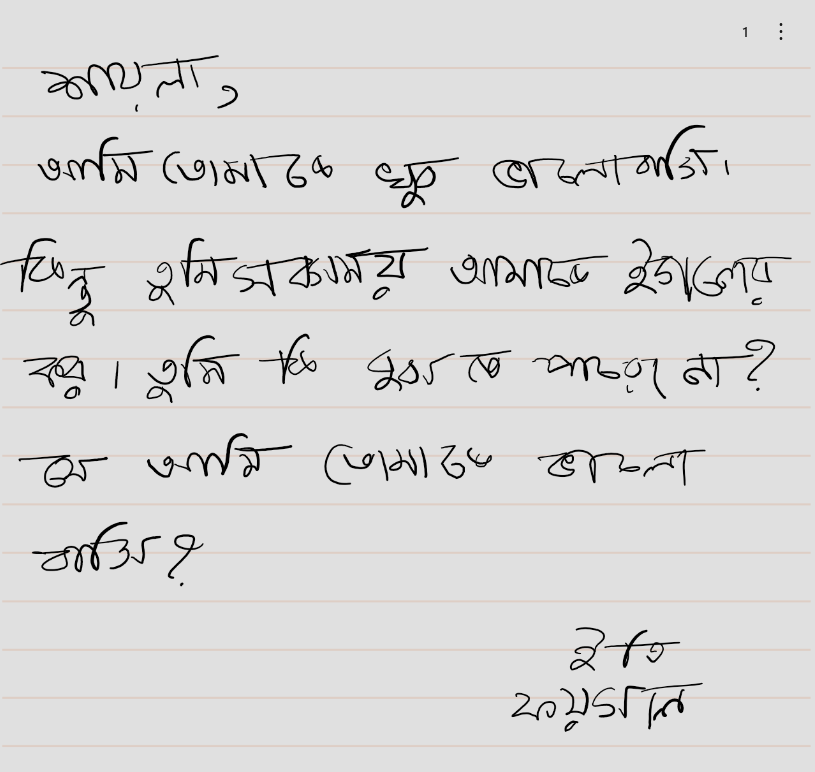 1
শায়লা,
আমি তোমাকে খুব ভালোবাসি।
কিন্তু তুমি সবসময় আমাকে ইগনোর
কর। তুমি কি বুঝতে পারো না?
যে আমি তোমাকে ভালো
বাসি?
ইতি
ফয়সাল